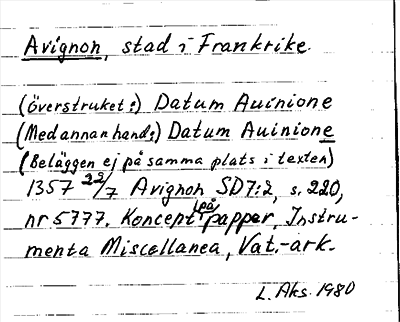 Avignon, stad i Frankrike.
(överstruket:) Datum Auinione
(Med annan hand:) Datum Auinione
(Beläggen ej på samma plats i texten)
1357 22/7 Avignon SD7:2, s. 220,
nr 5777. Koncept på papper, Instru-
menta Miscellanea, Vat.-ark.
L. Aks. 1980